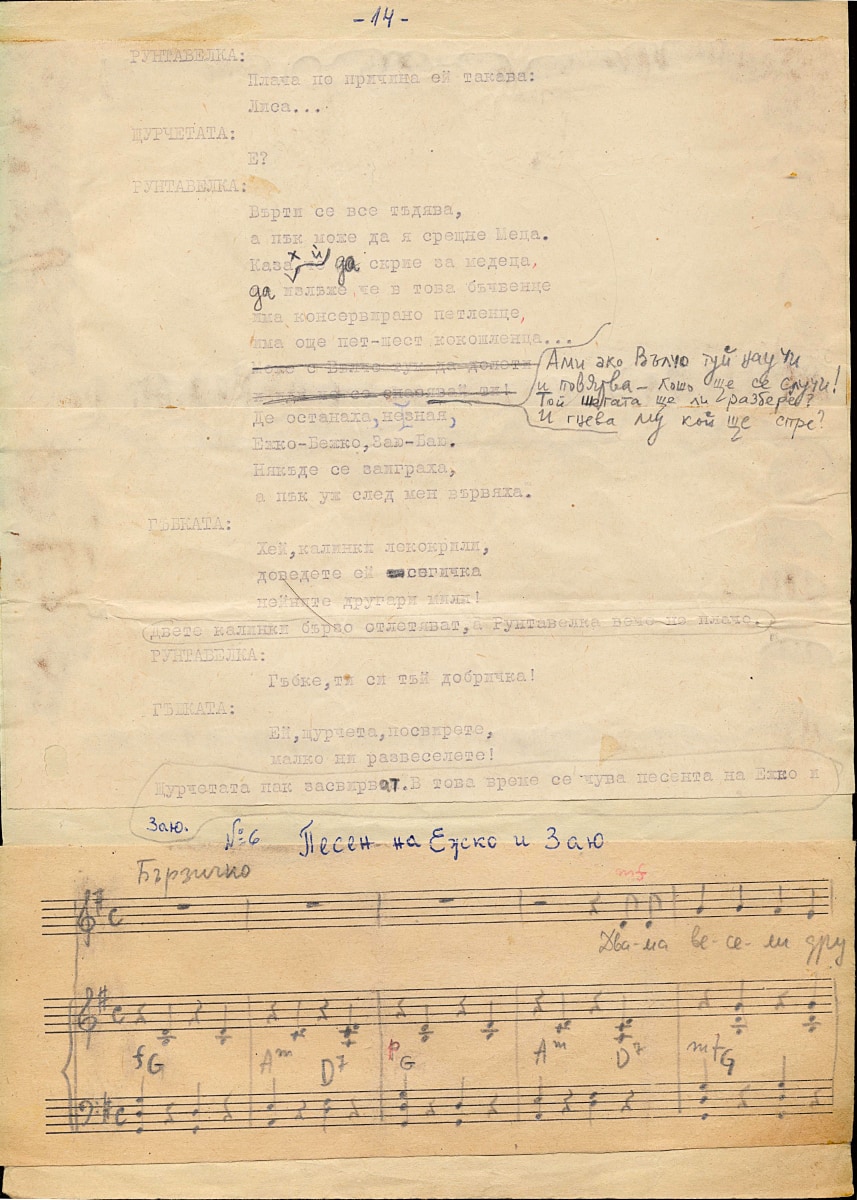 - 14 -
РУНТАВЕЛКА:
Плача по причина ей такава:
Лиса...
ЩУРЧЕТАТА:
Е?
РУНТАВЕЛКА:
Върти се все тъдява,
а пък може да я срещне Меца.
Каза да скрие за медеца,
да излъже че в това бъчвенце
има консервирано петленце,
има още пет-шест кокошленца...
Ами ако Вълчо туй научи
и повярва - лошо ще се случи!
Той шегата ще ли разбере?
И гнева му кой ще спре?
Де останаха, незная,
Ежко-Бежко, Заю-Баю.
Някъде се заиграха,
а пък уж след мен вървяха.
ГЪБКАТА:
Хей, калинки лекокрили,
доведете ей сегичка
нейните другари мили!
Двете калинки бързо отлетяват, а Рунтавелка вече не плаче.
РУНТАВЕЛКА:
Гъбке, ти си тъй добричка!
ГЪБКАТА:
Ей, щурчета, посвирете,
малко ни развеселете!
Щурчетата пак засвирват. В това време се чува песента на Ежко и
Заю.
№6 Песен на Ежко и Заю
Бързичко
mf
Два-ма ве-се-ли дру
f G Am D7 p G Am D7 mf G